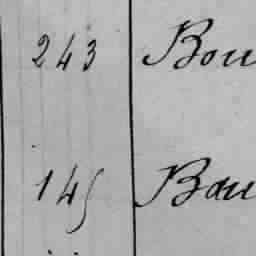 243 Bou
145 Bau